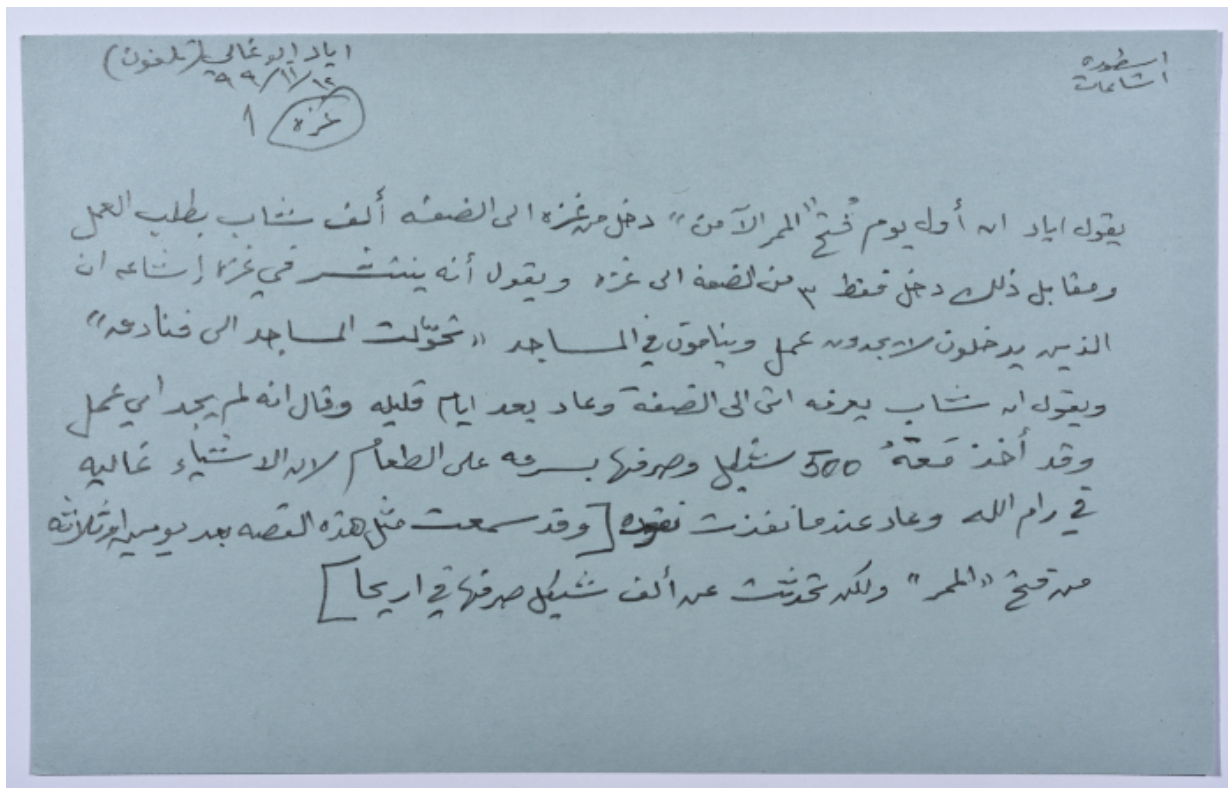 اسطوره
اشاعات
اياد ابو غالي (تلفون)
١٢/١١/٩٩
غزه ١
يقول اياد ان أول يوم فُتح "الممر الآمن" دخل من غزه الى الضفه ألف شاب بطلب العمل
ومقابل ذلك دخل فقط ٣ من الضفه الى غزه ويقول أنه ينتشر في غزه إشاعه ان
الذين يدخلون لا يجدون عمل وينامون في المساجد "تحوّلت المساجد الى فنادق"
ويقول ان شاب يعرفه اتى الى الضفة وعاد بعد ايام قليله وقال انه لم يجد أي عمل
وقد أخذ معهُ 500 شيكل وصرفها بسرعه على الطعام لان الاشياء غاليه
في رام الله وعاد عندما نفذت نقوده [وقد سمعت مثل هذه القصه بعد يومين او ثلاثه
من فتح "الممر" ولكن تحدثت عن ألف شيكل صرفها في اريحا]